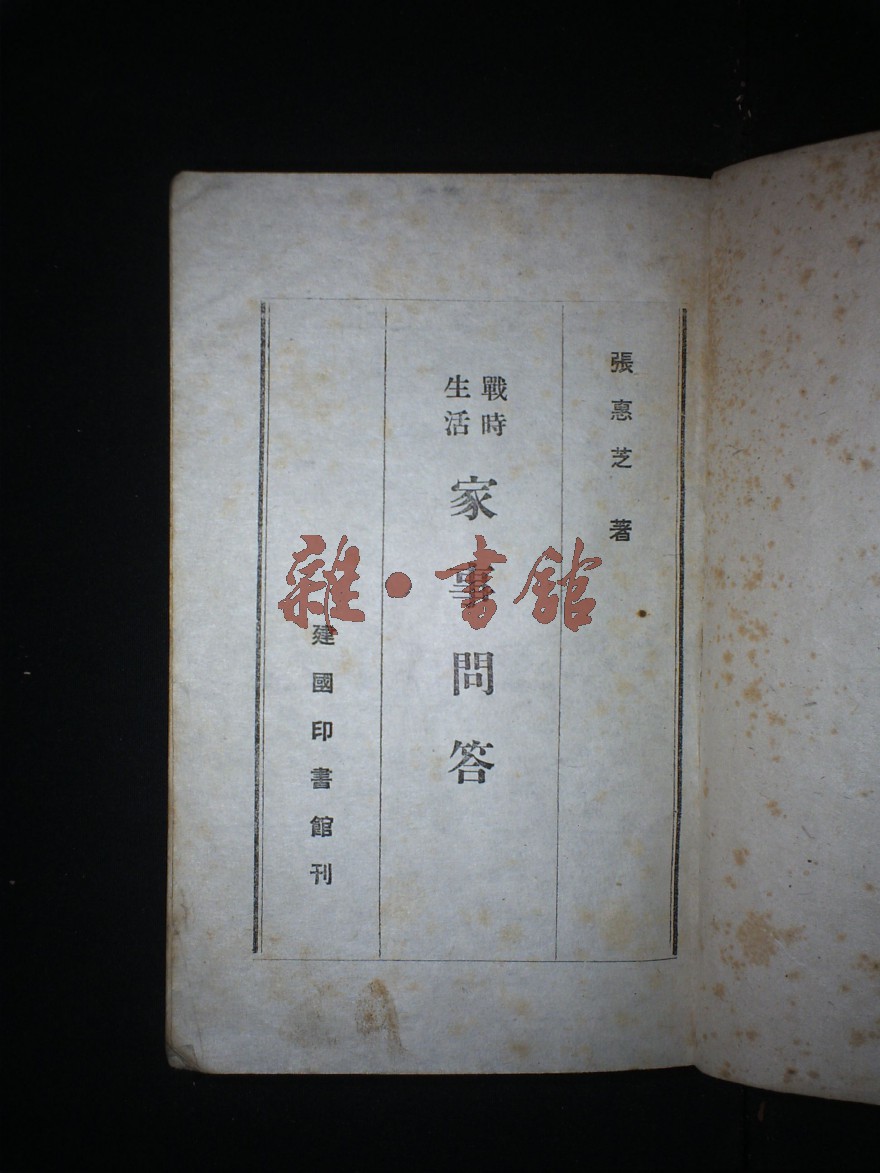 張惠芝 著
戰時
生活
家事問答
建國印書館刊
雜·書館